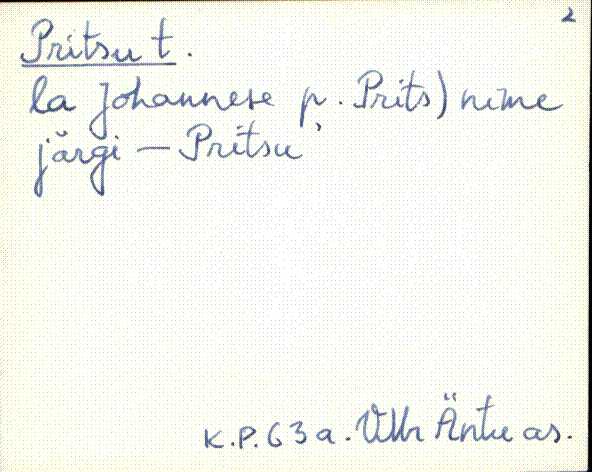 2
Pritsu t.
la Johannese p. Prits) nime
järgi — Pritsu'
K.P. 63 a. VMr Äntu as.